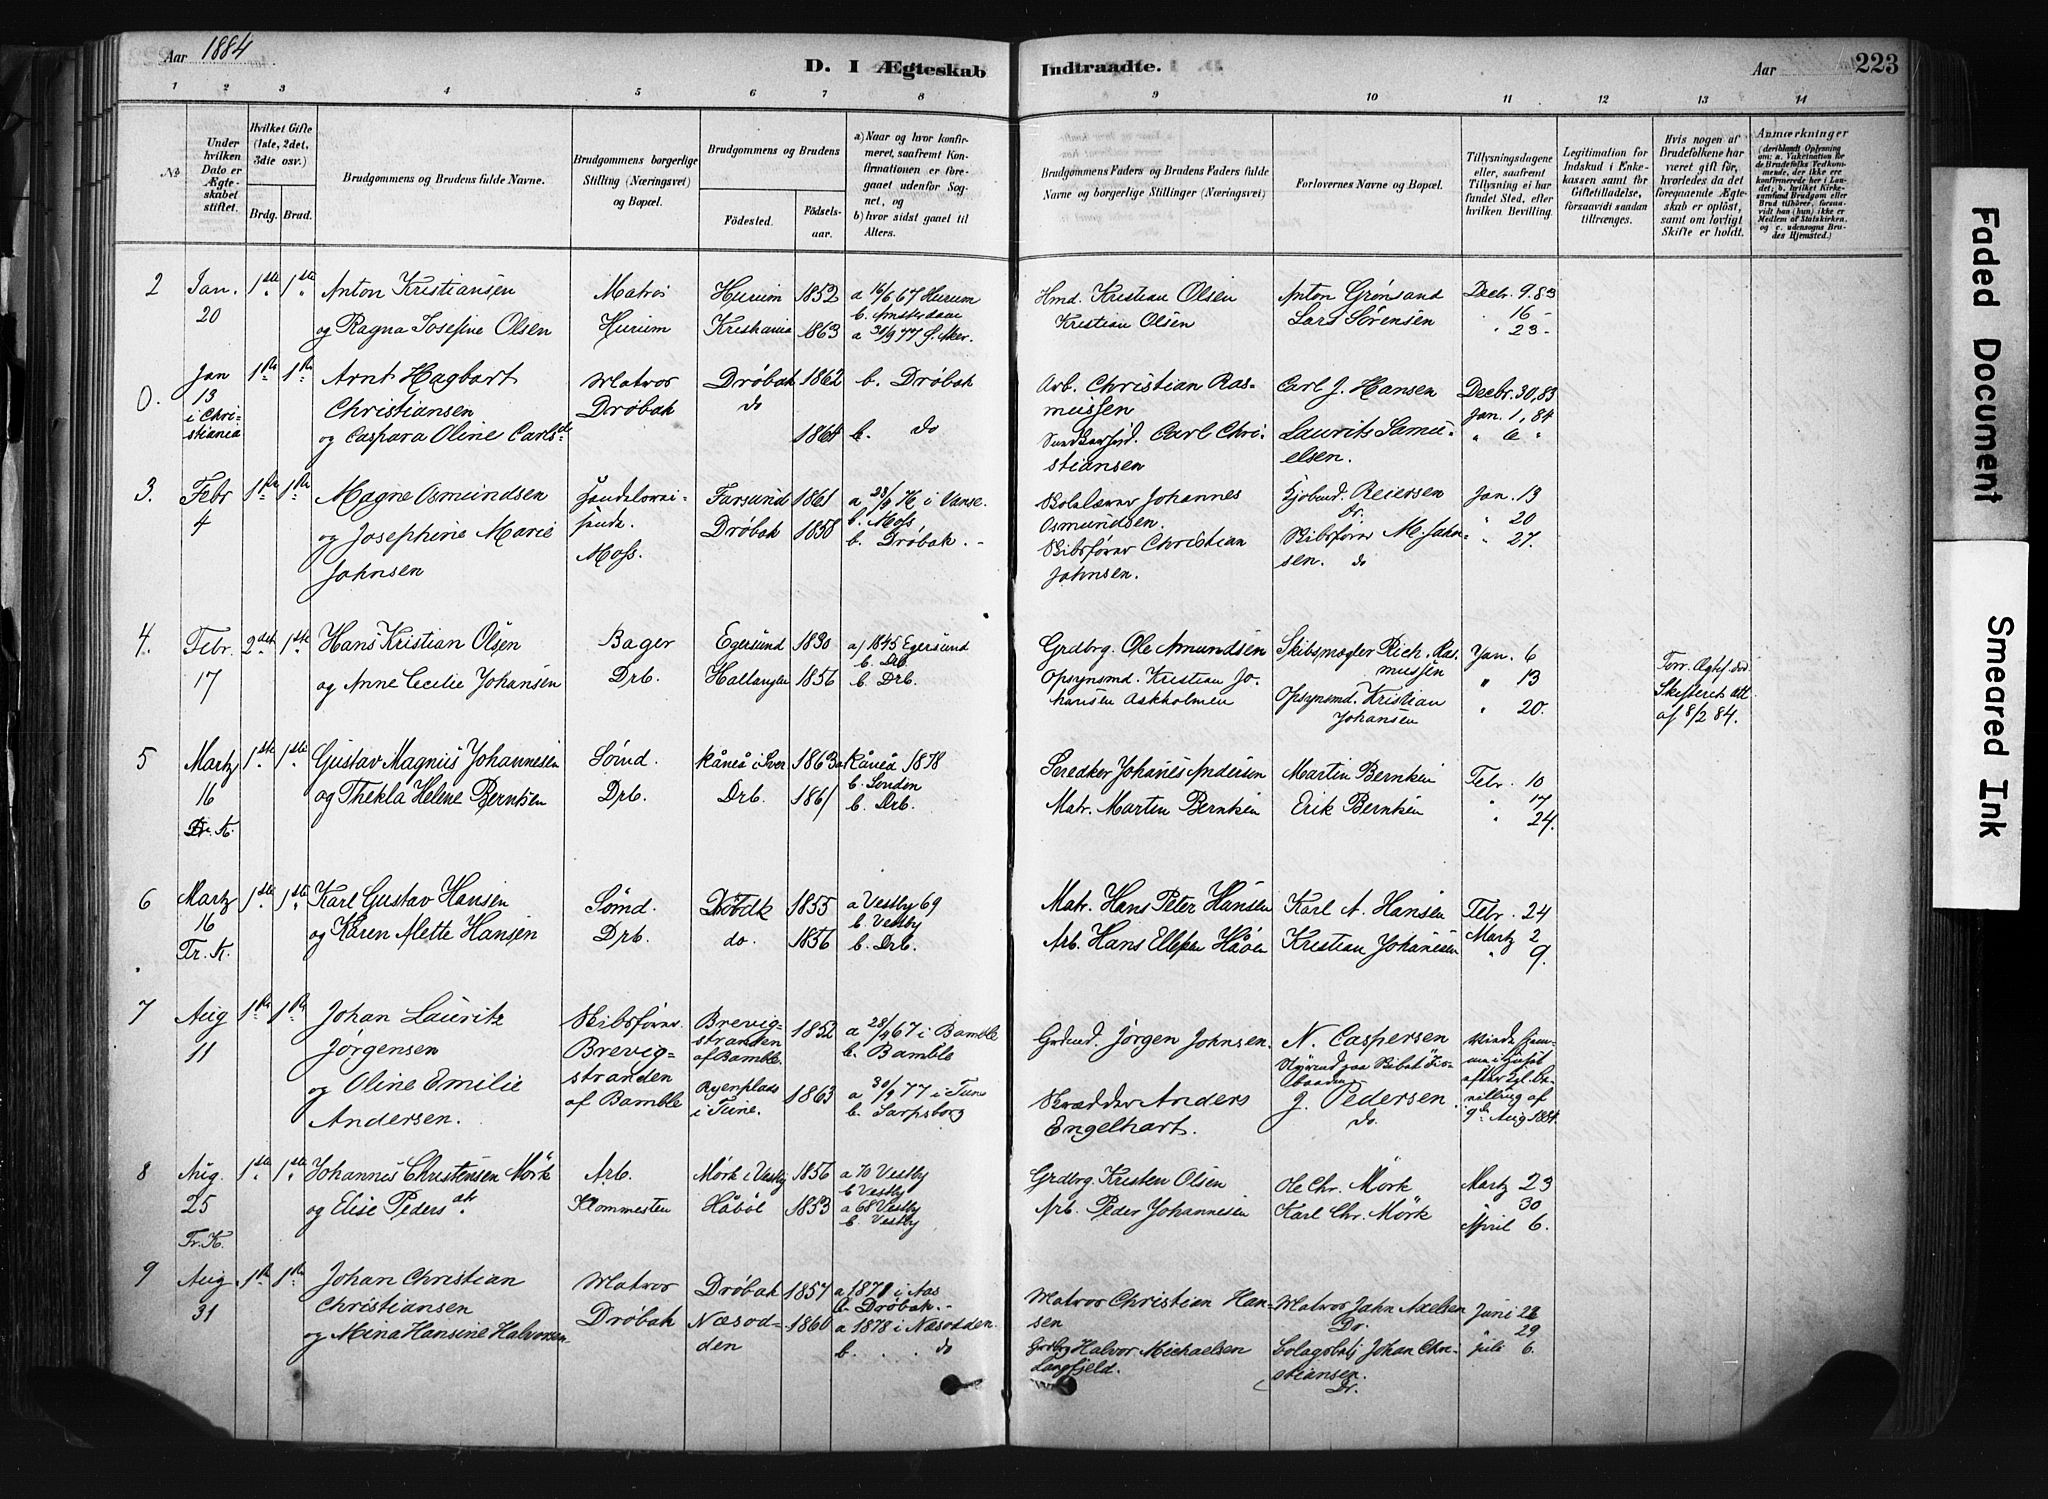 Aar 1884
D. I Ægteskab
Indtraadte.
Aar
223
1 2 3 4 5 6 7 8
9 10 11 12 13 14
No
Under hvilken Dato er Ægteskabet stiftet.
Hvilket Gifte (1ste, 2det, 3die osv.)
Brdg. Brud.
Brudgommens og Brudens fulde Navne.
Brudgommens borgerlige Stilling (Næringsvei) og Bopæl.
Brudgommens og Brudens
Fødested.
Fødselsaar.
a) Naar og hvor konfirmeret, saafremt Konfirmationen er foregaaet udenfor Sognet, og
b) hvor sidst gaaet til Alters.
Brudgommens Faders og Brudens Faders fulde Navne og borgerlige Stillinger (Næringsvei)
Forlovernes Navne og Bopæl.
Tillysningsdagene eller, saafremt Tillysning ei har fundet Sted, efter hvilken Bevilling.
Legitimation for Indskud i Enkekassen samt for Giftetilladelse, forsaavidt saadan tiltrænges.
Hvis nogen af Brudefolkene har været gift før, hvorledes da det foregaaende Ægteskab er opløst, samt om lovligt Skifte er holdt.
Anmærkninger
(deriblandt Oplysning om: a. Vakcination for de Brudefolks Vedkommende, der ikke ere konfirmerede her i Landet; b. hvilket Kirkesamfund Brudgom eller Brud tilhører, forsaavidt han (hun) ikke er Medlem af Statskirken, og c. udensogns Brudes Hjemsted.)
2 Jan. 20 1ste 1ste
Anton Kristiansen
og Ragna Josefine Olsen
Matros
Hurum
Hurum 1852
Kristiania 1863
a 16/6 67 Hurum
b. Amsterdam
a 30/9 77 Ø. Aker.
Hmd. Kristian Olsen
Kristian Olsen
Anton Grønsand
Lars Sørensen
Decbr. 9. 83
" 16 -
" 23 -
0. Jan 13 i Christiania 1ste 1ste
Arnt Hagbart
Christiansen
og Caspara Oline Carlsd.
Matros
Drøbak
Drøbak 1862
do 1864
b. Drøbak
b. do
Arb. Christian Rasmussen
Carl Christiansen
Carl J. Hansen
Laurits Samuelsen.
Decbr. 30, 83
Jan. 1, 84
" 6 "
3. Febr 4 1ste 1ste
Magne Osmundsen
og Josephine Marie
Johnsen
Moss.
Farsund 1861
Drøbak 1858
a 23/9 76 i Vanse.
b. Moss
b. Drøbak. -
Skolelærer Johannes
Osmundsen.
Skibsfører Christian
Johnsen.
Kjøbmd. Reiersen
Dr.
Skibsfører M. Johnsen. do
Jan. 13
" 20
" 27.
4. Febr. 17 2det 1ste
Hans Kristian Olsen
og Anne Cecilie Johansen
Bager
Drb.
Egersund 1830
Hallangen 1856
a) 1845 Egersund
b. Drb.
b. Drb.
Grdbrg. Ole Amundsen
Opsynsmd. Kristian Johansen Askholmen
Skibsmægler Rich. Rasmussen
Opsynsmd. Kristian
Johansen
Jan. 6
" 13
" 20.
Skifteret. att
af 8/2 84.
5 Martz 16 Dr. K. 1ste 1ste
Gustav Magnus Johannesen
og Thekla Helene Berntsen
Sømd.
Drb.
Råneå i Sver 1863
Drb. 1861
a Råneå 1878
b. London
b. Drb.
Johanes Andersen
Matr. Martin Berntsen
Martin Berntsen
Erik Berntsen
Febr. 10
" 17
" 24.
6 Martz 16 Fr. K. 1ste 1ste
Karl Gustav Hansen
og Karen Mette Hansen
Sømd.
Drb.
Drøbak 1855
do. 1856
a Vestby 69
b. Vestby
b. Drb.
Matr. Hans Peter Hansen
Arb. Hans Ellefsen Håøen
Karl A. Hansen
Kristian Johanesen
Febr. 24
Martz 2
" 9.
7 Aug 11 1ste 1ste
Johan Lauritz
Jørgensen
og Oline Emilie
Andersen.
Skibsfører.
Brevigstranden
af Bamble
Brevigstranden
af Bamble. 1852
Ryenplads
i Tune. 1863
a 28/4 67 i Bamble
b. Bamble
a 30/9 77 i Tune
b. Sarpsborg
Grdmd. Jørgen Johnsen.
Skrædder Anders
Engelhart.
N. Caspersen
J. Pedersen
do.
9de Aug 1884.
8 Aug. 25 Fr. K. 1ste 1ste
Johannes Christensen Mörk
og Elise Pedersdtr.
Arb.
Klommesten
Mörk i Vestby 1856
Håböl 1853
a 70 Vestby
b Vestby
a 68 Vestby
b. Vestby
Grdbrg. Kristen Olsen
Arb. Peder Johannesen
Ole Chr. Mörk
Karl Chr. Mörk
Martz 23
" 30
April 6.
9 Aug 31 1ste 1ste
Johan Christian
Christiansen
og Mina Hansine Halvorsen
Matros
Drøbak
Drøbak 1857
Næsodden 1860
a 1871 i Aas
b. Drøbak. -
a 1878 i Næsodden.
b. . . do
Matros Christian Hansen
Grdbrg Halvor Michaelsen
Langfjeld.
Matros John Axelsen
Dr.
Johan Christiansen.
Dr.
Juni 22
" 29
Juli 6.
Faded Document
Smeared Ink